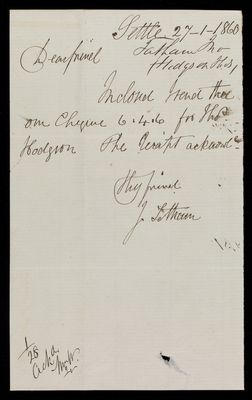 Settle 27-1-1860
Tatham Jno
Hodgson Thos,
Dear friend
Inclosed I send thee
our Cheque 6.4.6 for Thos
Hodgson The Receipt acknowd
Thy friend
J. Tatham
1/28
Ackd